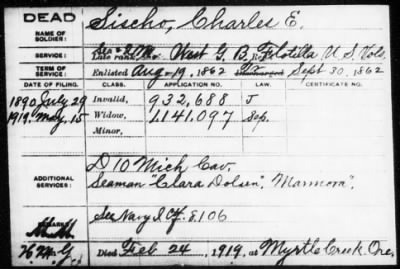 DEAD
NAME OF SOLDIER:
Sischo, Charles E.
SERVICE:
Late rank, Sea & Q.M. West G. B. Flotilla U.S. Vols
TERM OF SERVICE:
Enlisted Aug. 19, 1862 Discharged Sept 30, 1862
DATE OF FILING. CLASS. APPLICATION NO. LAW. CERTIFICATE NO.
1890, July 29 Invalid, 932,688 J
1919, May, 15 Widow, 1,141,097 Sep.
Minor,
ADDITIONAL SERVICES:
D 10 Mich Cav.
Seaman "Clara Dolsen", "Marmora".
See Navy S Cf. 8106
REMARKS:
Died Feb 24, 1919, at Myrtle Creek, Ore.